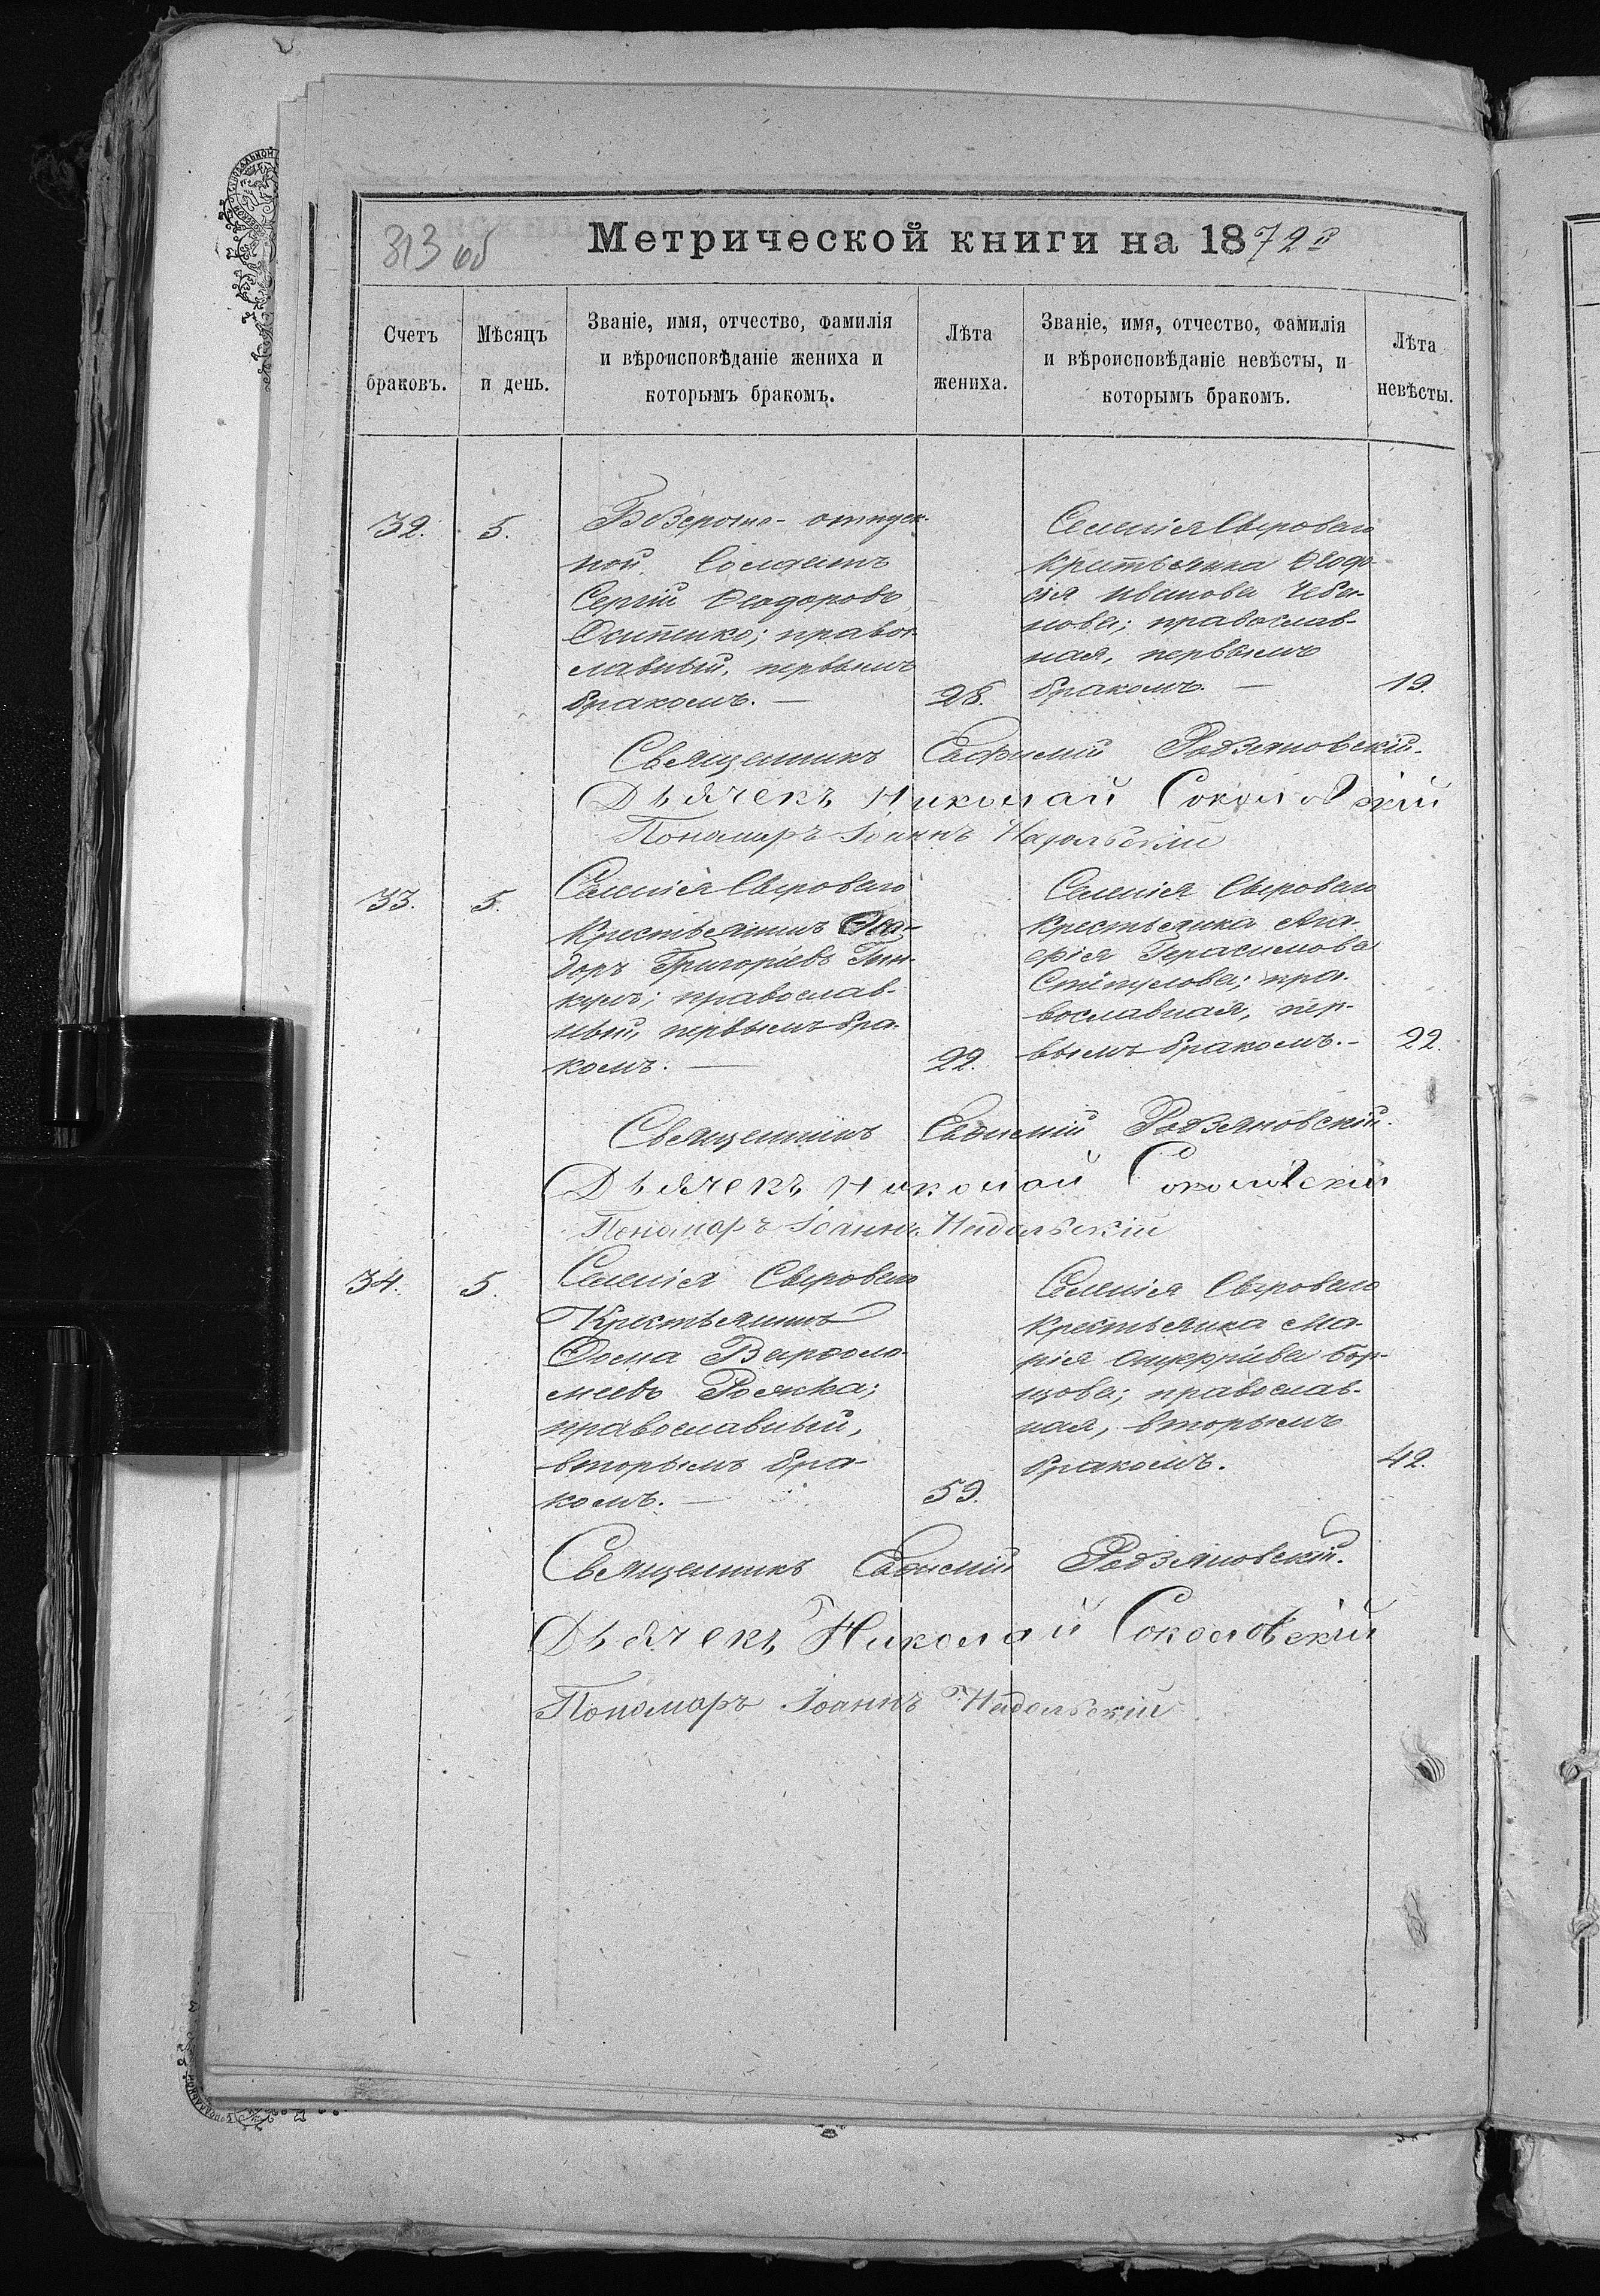 313 об
Метрической книги на 1872й
Счетъ
браковъ.
Мѣсяцъ
и день.
Званіе, имя, отчество, фамилія
и вѣроисповѣданіе жениха и
которымъ бракомъ.
Лѣта
жениха.
Званіе, имя, отчество, фамилія
и вѣроисповѣданіе невѣсты, и
которымъ бракомъ.
Лѣта
невѣсты.
32.
5.
отпуск-
ной Солдатъ
Сергій Ѳеодоровъ
Осипенко; правос-
лавный, первымъ
бракомъ. —
28.
Селенія Сыроваго
крестьянка Ѳеодо-
сія Иванова Чеба-
нова; православ-
ная, первымъ
бракомъ. —
19.
Священникъ Евфимій Родзяновскій.
Дьячекъ Николай Соколовскій
Пономаръ Іоаннъ Надольскій
33.
5.
Селенія Сыроваго
Крестьянинъ Ѳео-
доръ Григоріевъ
православ-
ный, первымъ бра-
комъ. —
22.
Селенія Сыроваго
Крестьянка Ага-
фія Герасимова
пра-
вославная, пер-
вымъ бракомъ. —
22.
Священникъ Евфимій Родзяновскій.
Дьячекъ Николай Соколовскій
Пономаръ Іоаннъ Надольскій
34.
5.
Селенія Сыроваго
Крестьянинъ
Ѳома Варѳоло-
меевъ
православный,
вторымъ бра-
комъ. —
59.
Селенія Сыроваго
Крестьянка Ма-
рія Онуфріева Бор-
щова; православ-
ная, вторымъ
бракомъ.
42.
Священникъ Евфимій Родзяновскій.
Дьячекъ Николай Соколовскій
Пономаръ Іоаннъ Надольскій